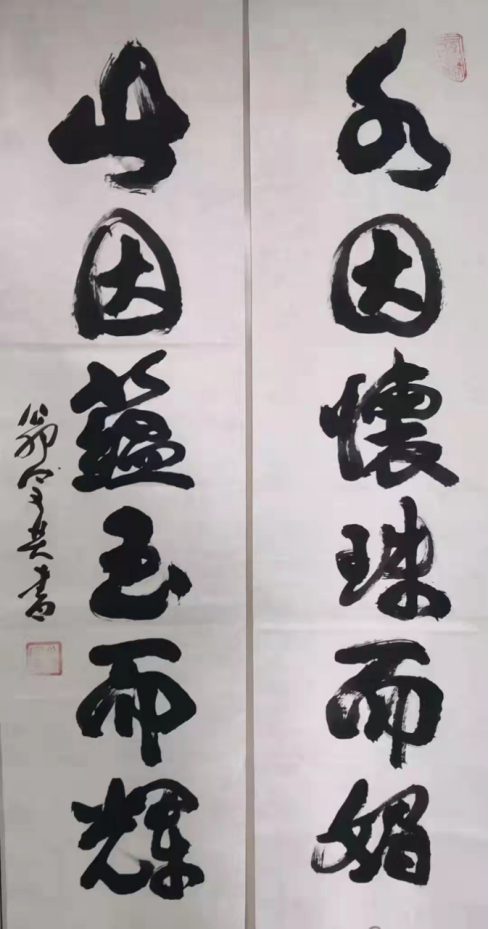 水因懷珠而媚
山因藴玉而輝
書